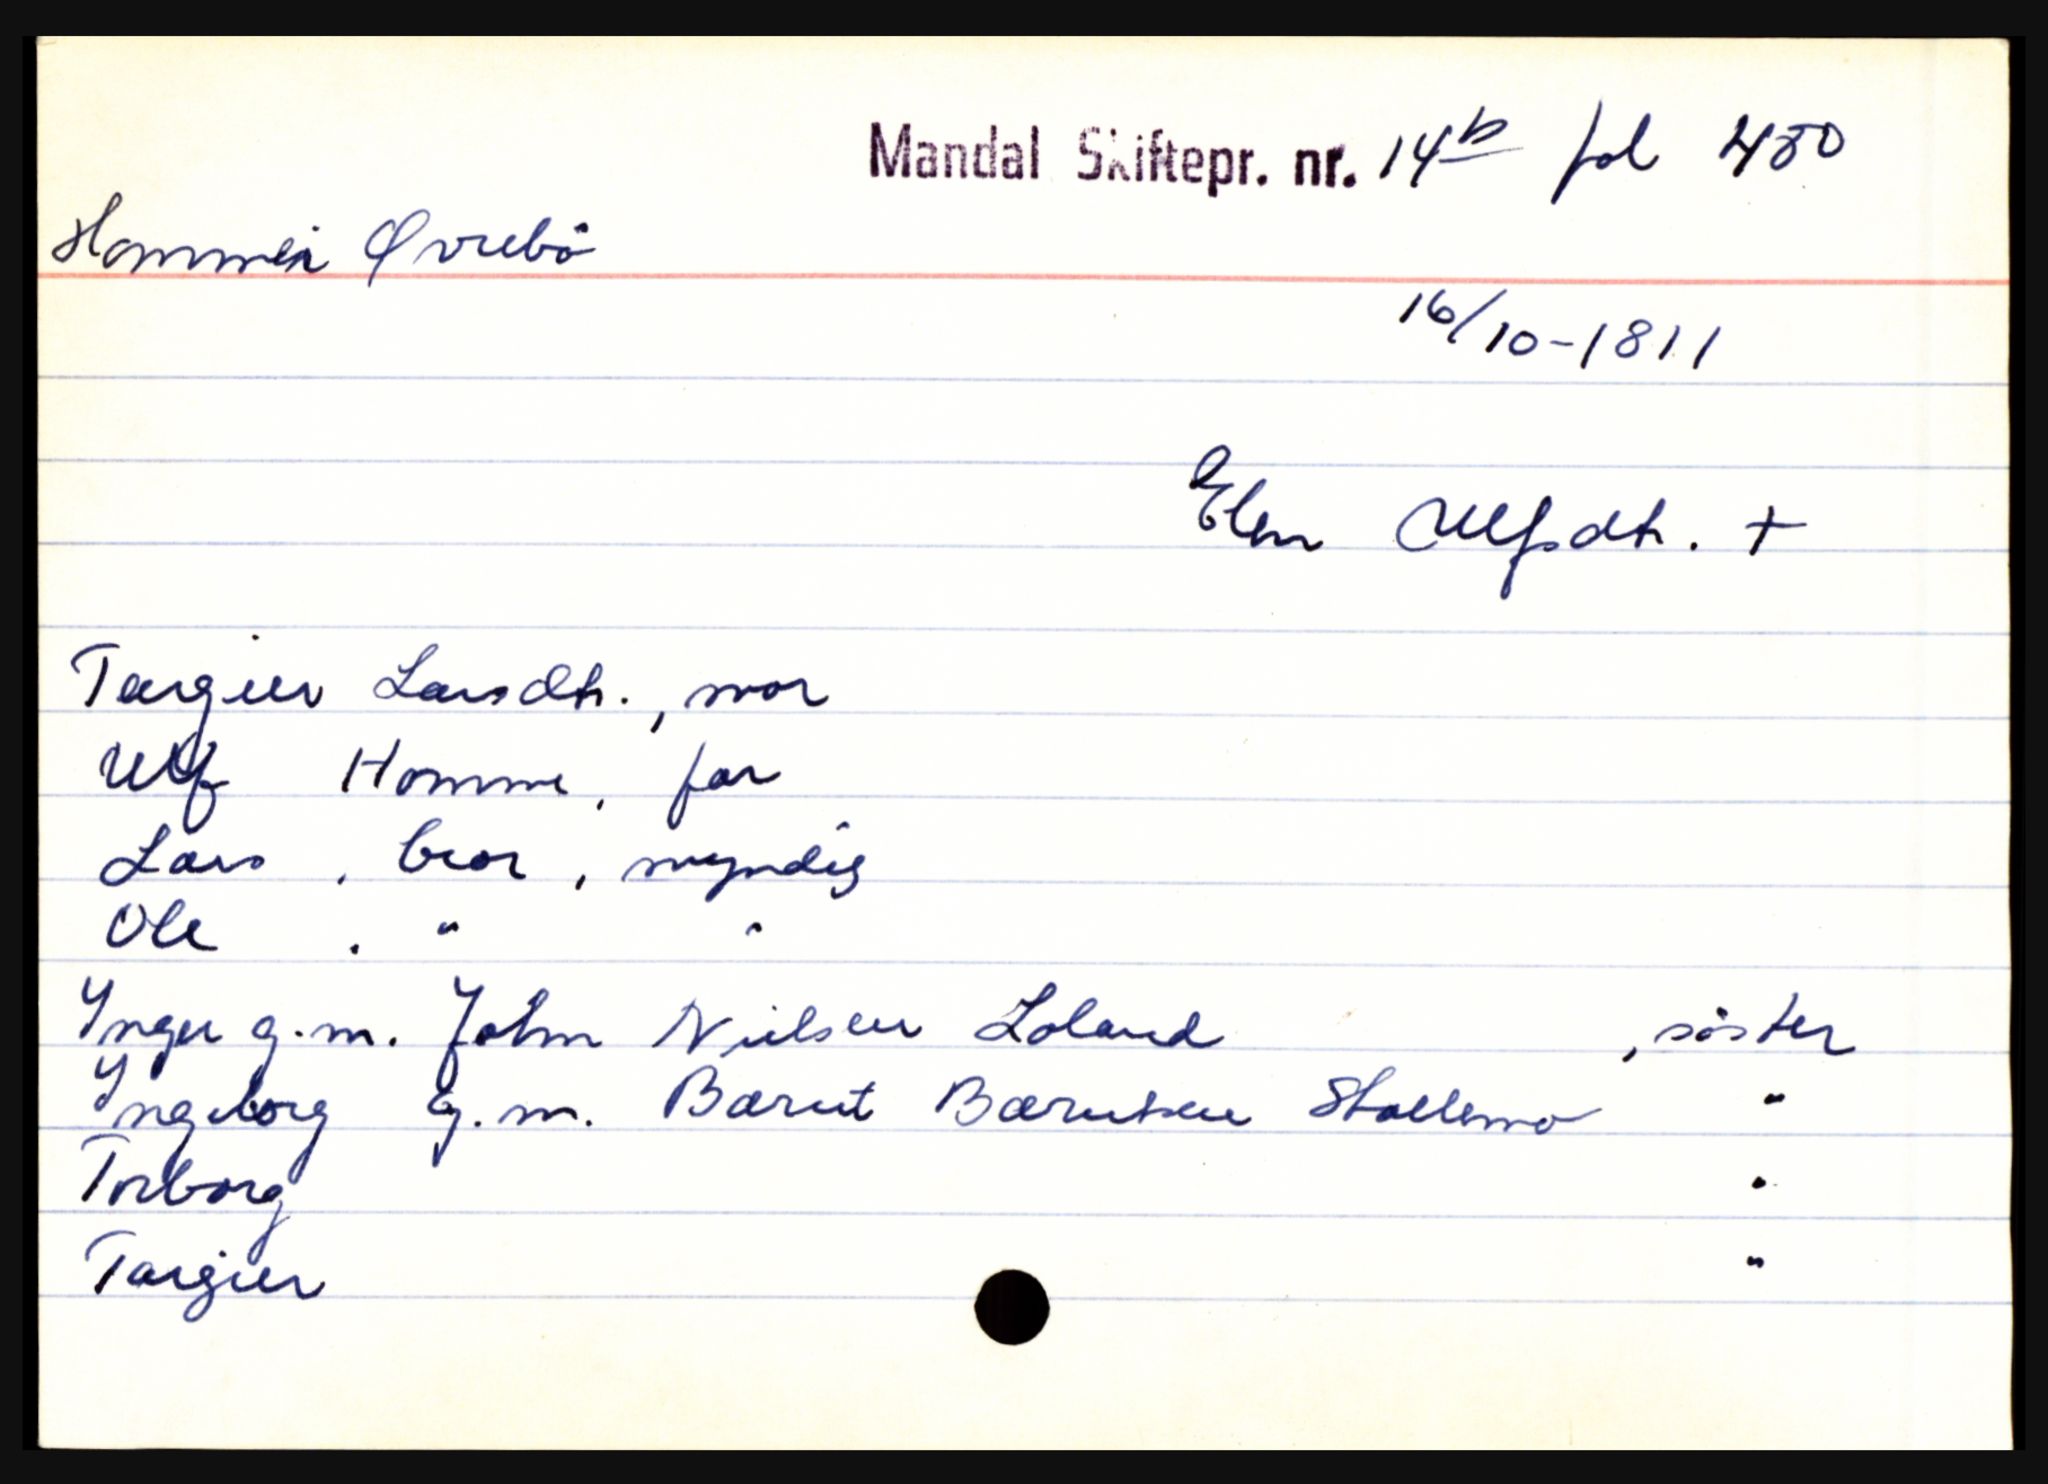 Mandal Skiftepr. nr. 14b fol 480
Homme i Øvrebö
16/10-1811
Elen Ulfsdtr. +
Targier Larsdtr., mor
Ulf Homme, far
Lars, bror, myndig
Ole, " "
Inger g.m. John Nielsen Loland, söster
Ingeborg g.m. Bærut Bærutsen Stallemo "
Torborg "
Targier "